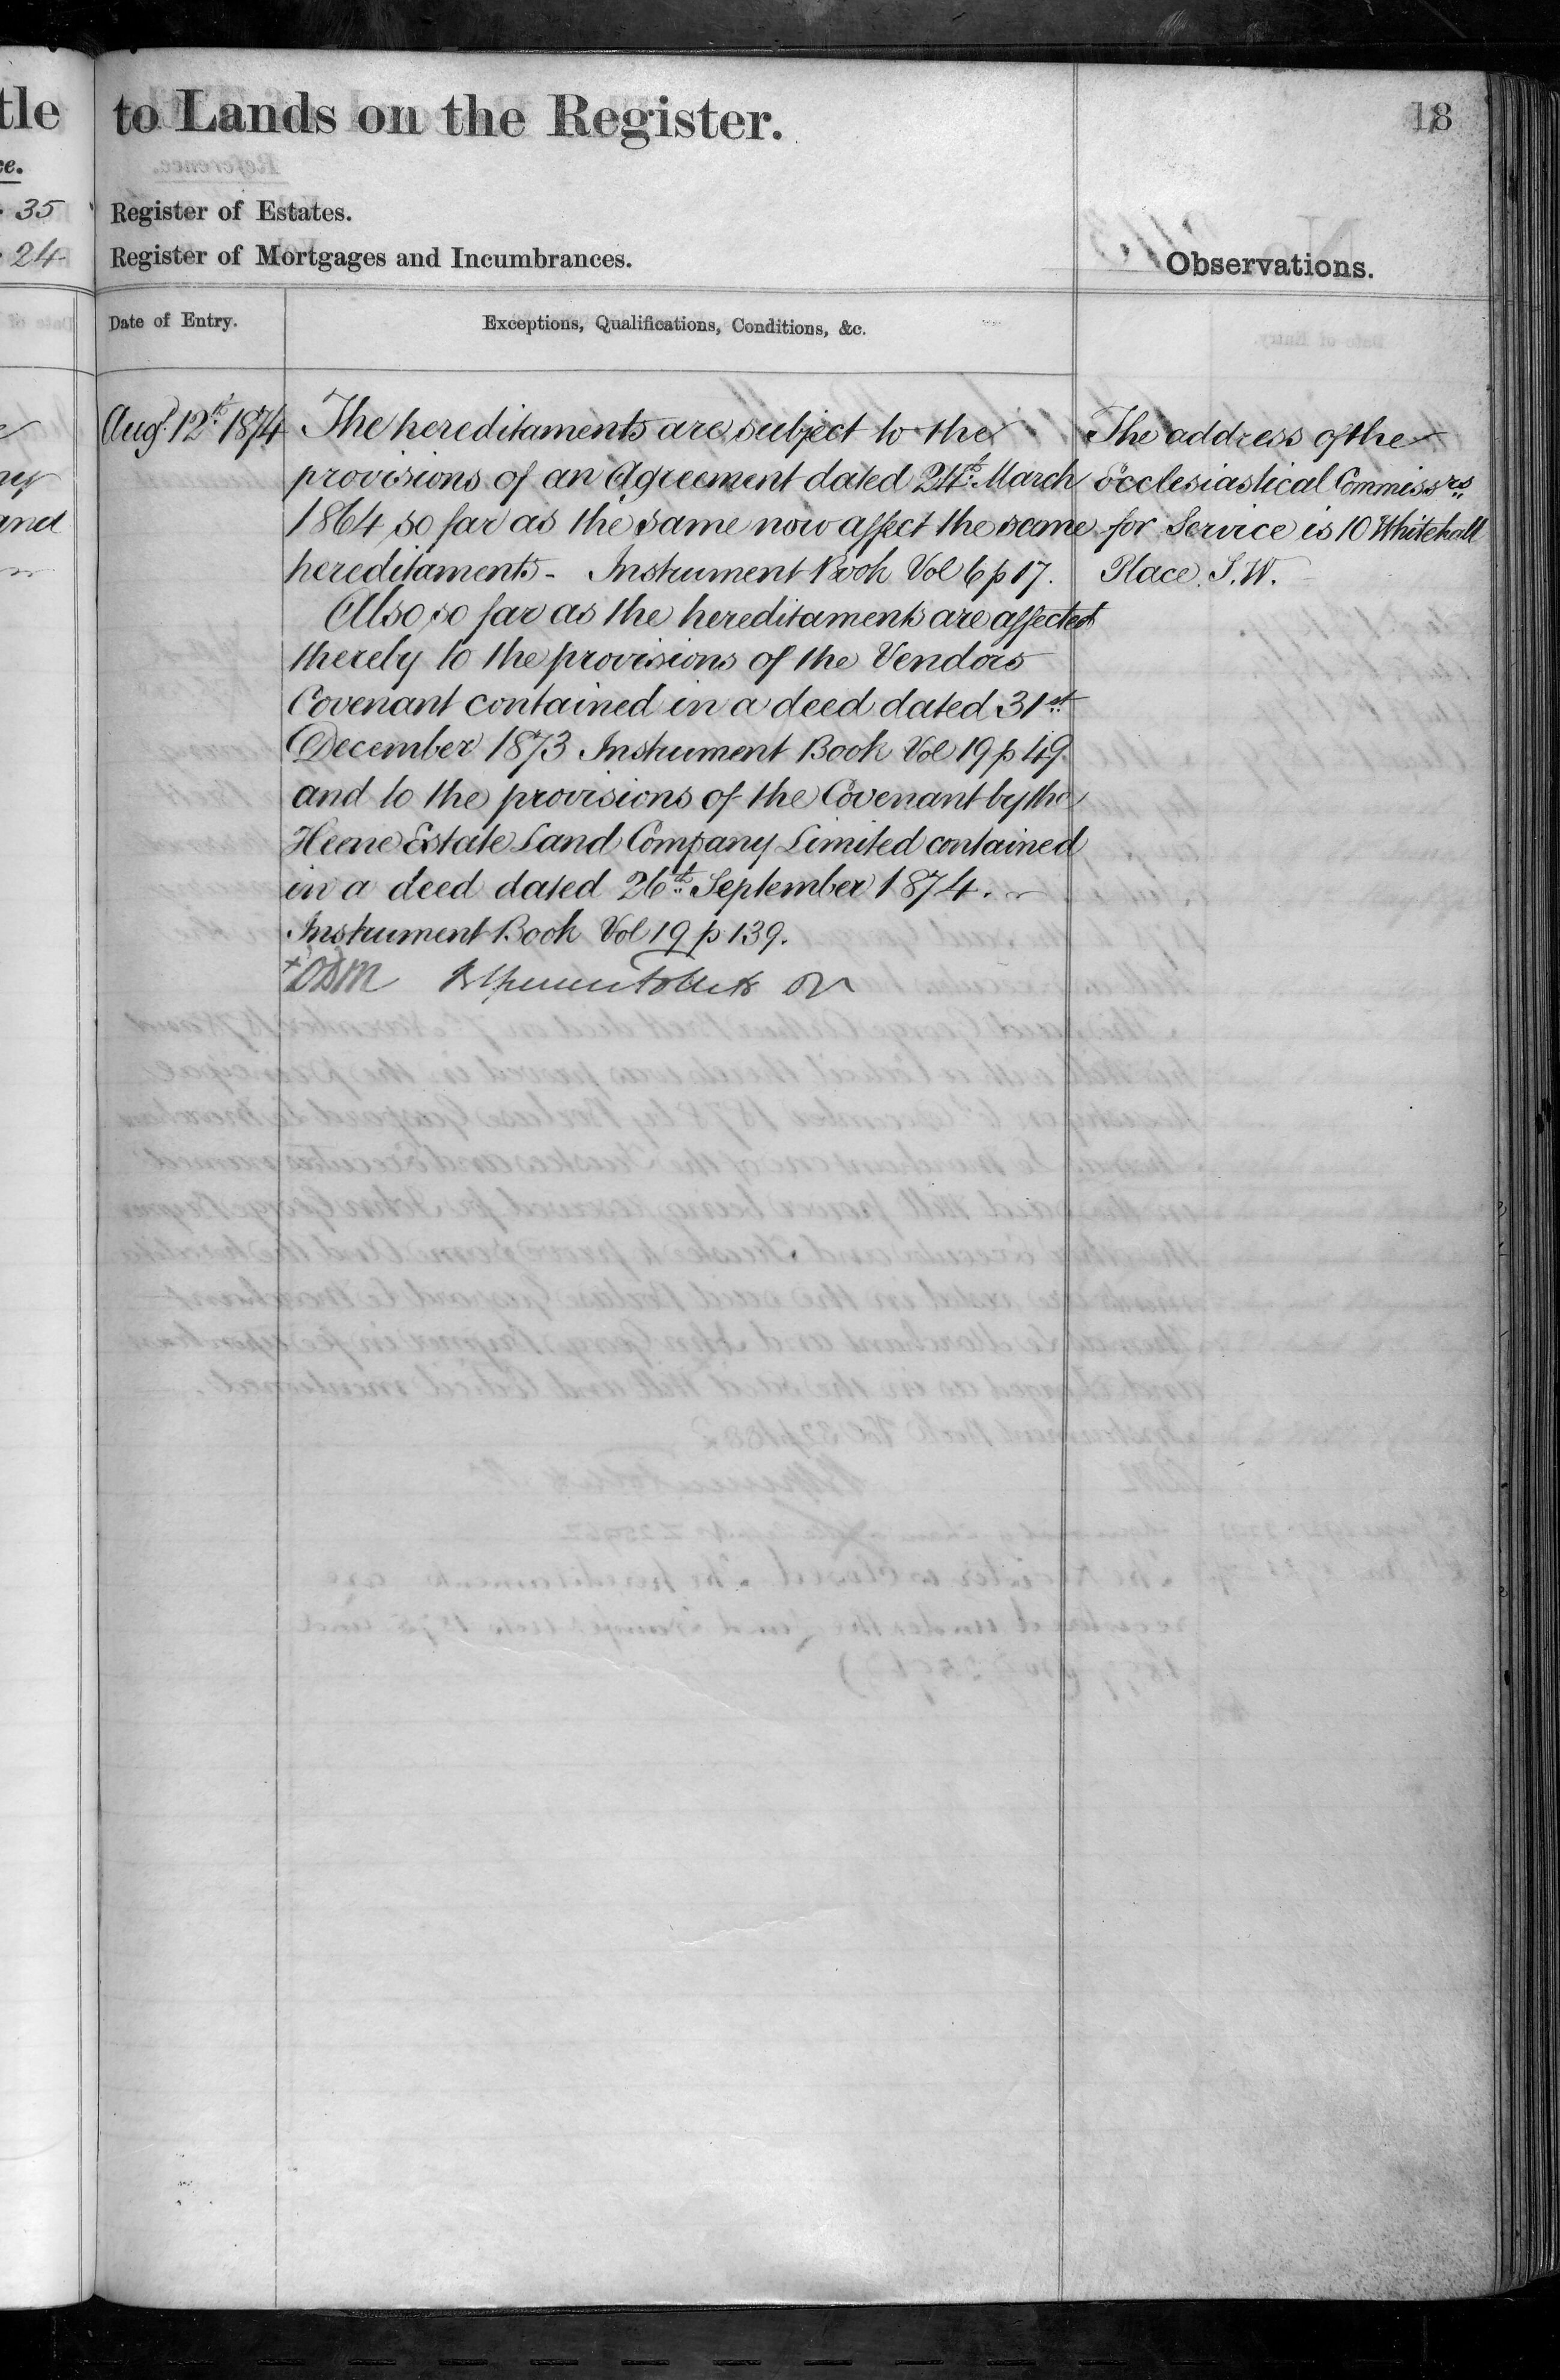 tle
ce.
35
24
and
to Lands on the Register.
18
Register of Estates.
Register of Mortgages and Incumbrances.
Observations.
Date of Entry.
Exceptions, Qualifications, Conditions, &c.
Augt. 12th. 1874
The hereditaments are subject to the
provisions of an Agreement dated 24th. March
1864 so far as the same now affect the same
hereditaments - Instrument Book Vol 6 p 17.
Also so far as the hereditaments are affected
thereby to the provisions of the Vendors
Covenant contained in a deed dated 31st.
December 1873 Instrument Book Vol 19 p 49
and to the provisions of the Covenant by the
Heene Estate Land Company Limited contained
in a deed dated 26th. September 1874.
Instrument Book Vol 19 p 139.
The address of the
Ecclesiastical Commissrs
for Service is 10 Whitehall
Place. S.W.